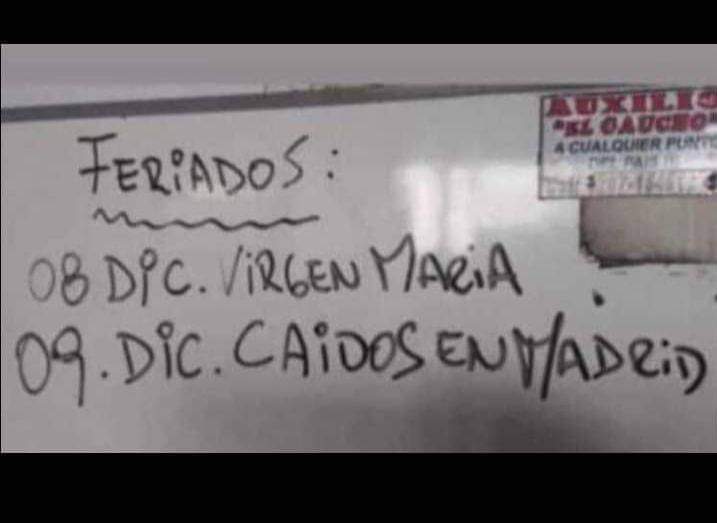 FERIADOS:
08 DIC. VIRGEN MARIA
09. DIC. CAIDOS EN MADRID
AUXILIO
"EL GAUCHO"
A CUALQUIER PUNTO
DEL PAIS